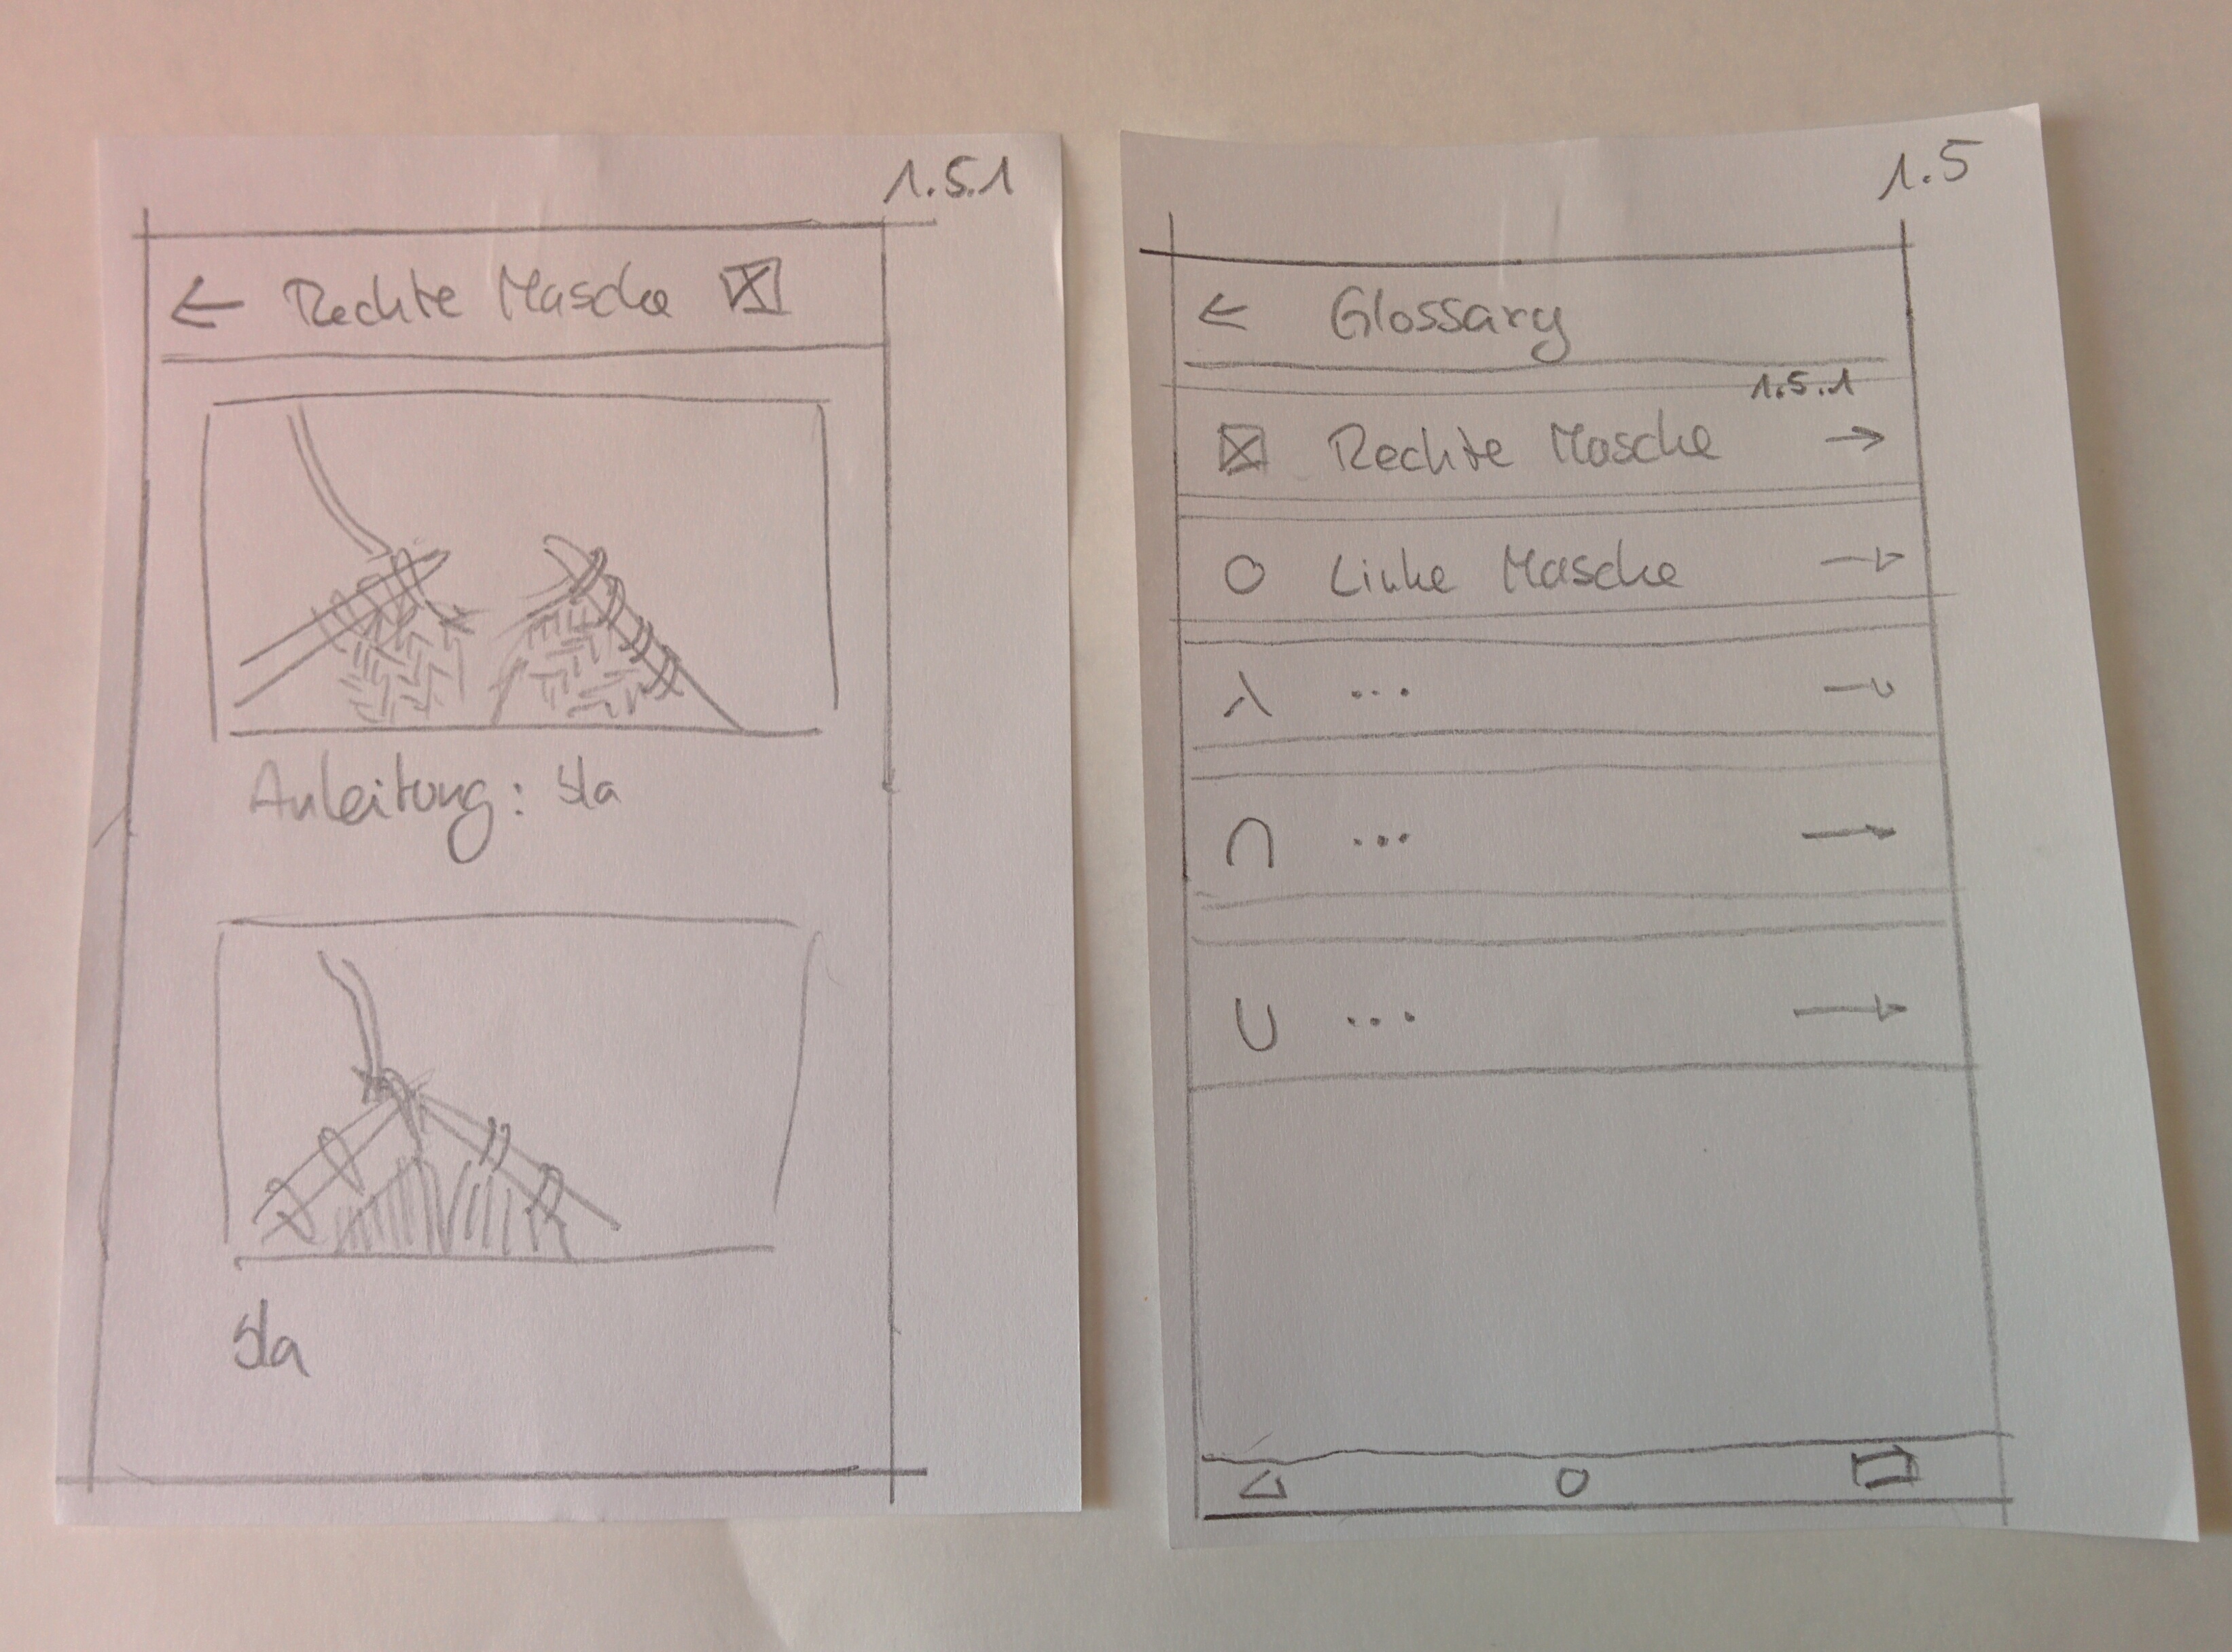 1.5.1
← Rechte Masche
Anleitung: bla
bla
1.5
← Glossary
1.5.1
Rechte Masche →
Linke Masche →
λ ... →
∩ ... →
∪ ... →